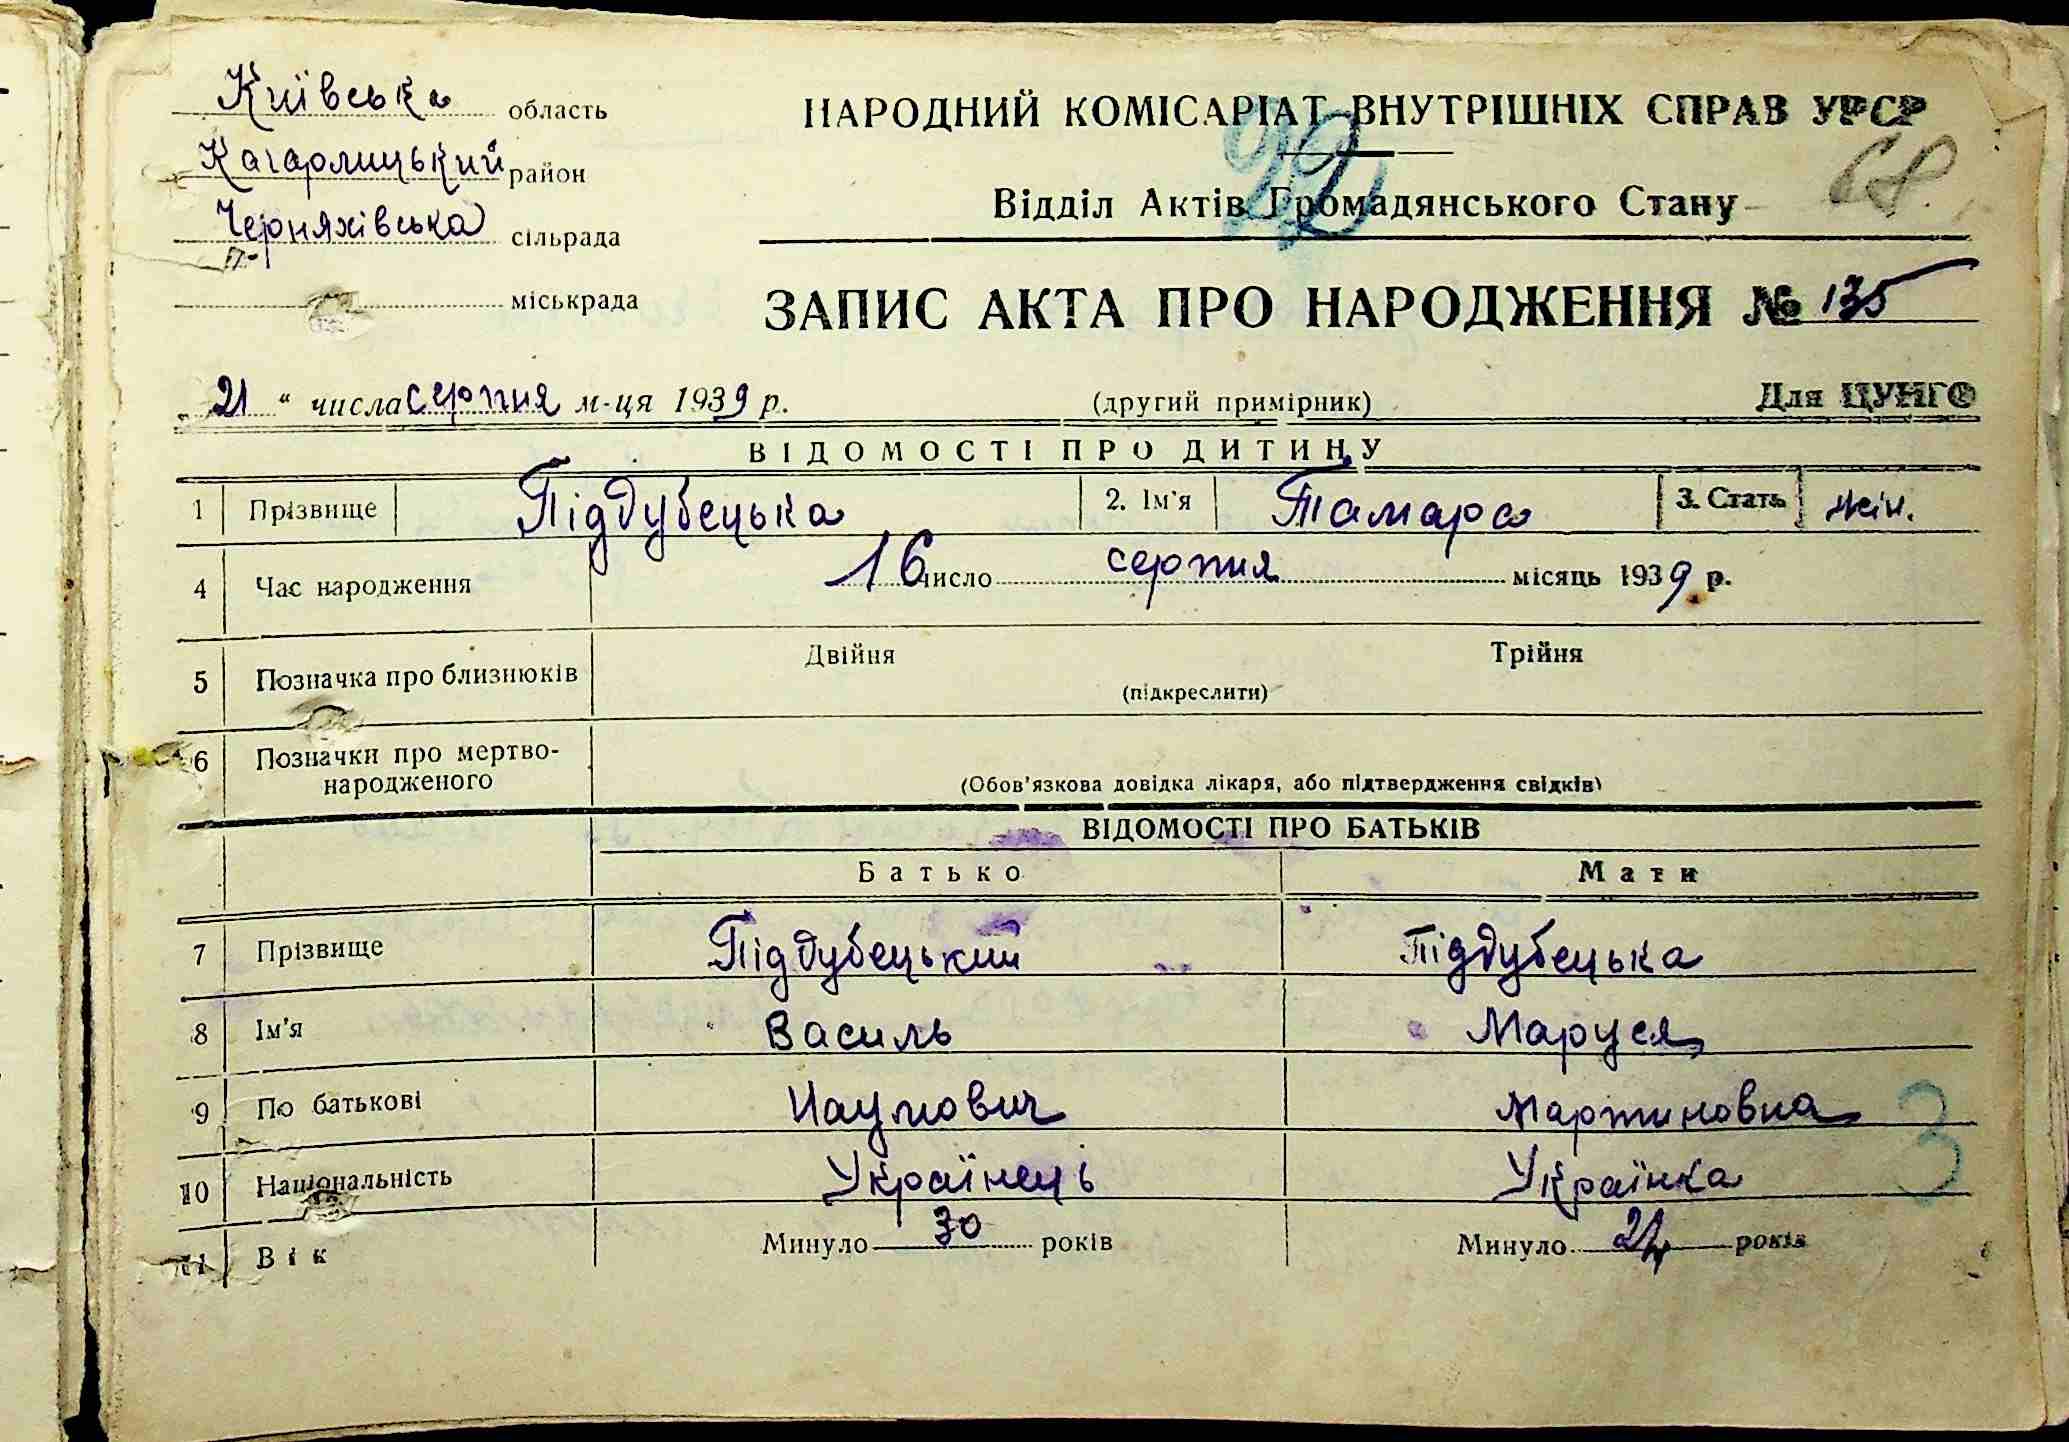 Київська область
Кагарлицький район
Черняхівська сільрада
міськрада
НАРОДНИЙ КОМІСАРІАТ ВНУТРІШНІХ СПРАВ УРСР
22
68
Відділ Актів Громадянського Стану
ЗАПИС АКТА ПРО НАРОДЖЕННЯ № 135
„ 21 “ числа серпня м-ця 1939 р. (другий примірник) Для ЦУНГО
ВІДОМОСТІ ПРО ДИТИНУ
1 Прізвище Піддубецька 2. Ім'я Тамара 3. Стать жін.
4 Час народження 16 число серпня місяць 1939 р.
5 Позначка про близнюків Двійня Трійня
(підкреслити)
6 Позначки про мертво-
народженого (Обов'язкова довідка лікаря, або підтвердження свідків)
ВІДОМОСТІ ПРО БАТЬКІВ
Батько Мати
7 Прізвище Піддубецький Піддубецька
8 Ім'я Василь Маруся
9 По батькові Наумович Мартиновна
3
10 Національність Українець Українка
11 Вік Минуло 30 років Минуло 24 років